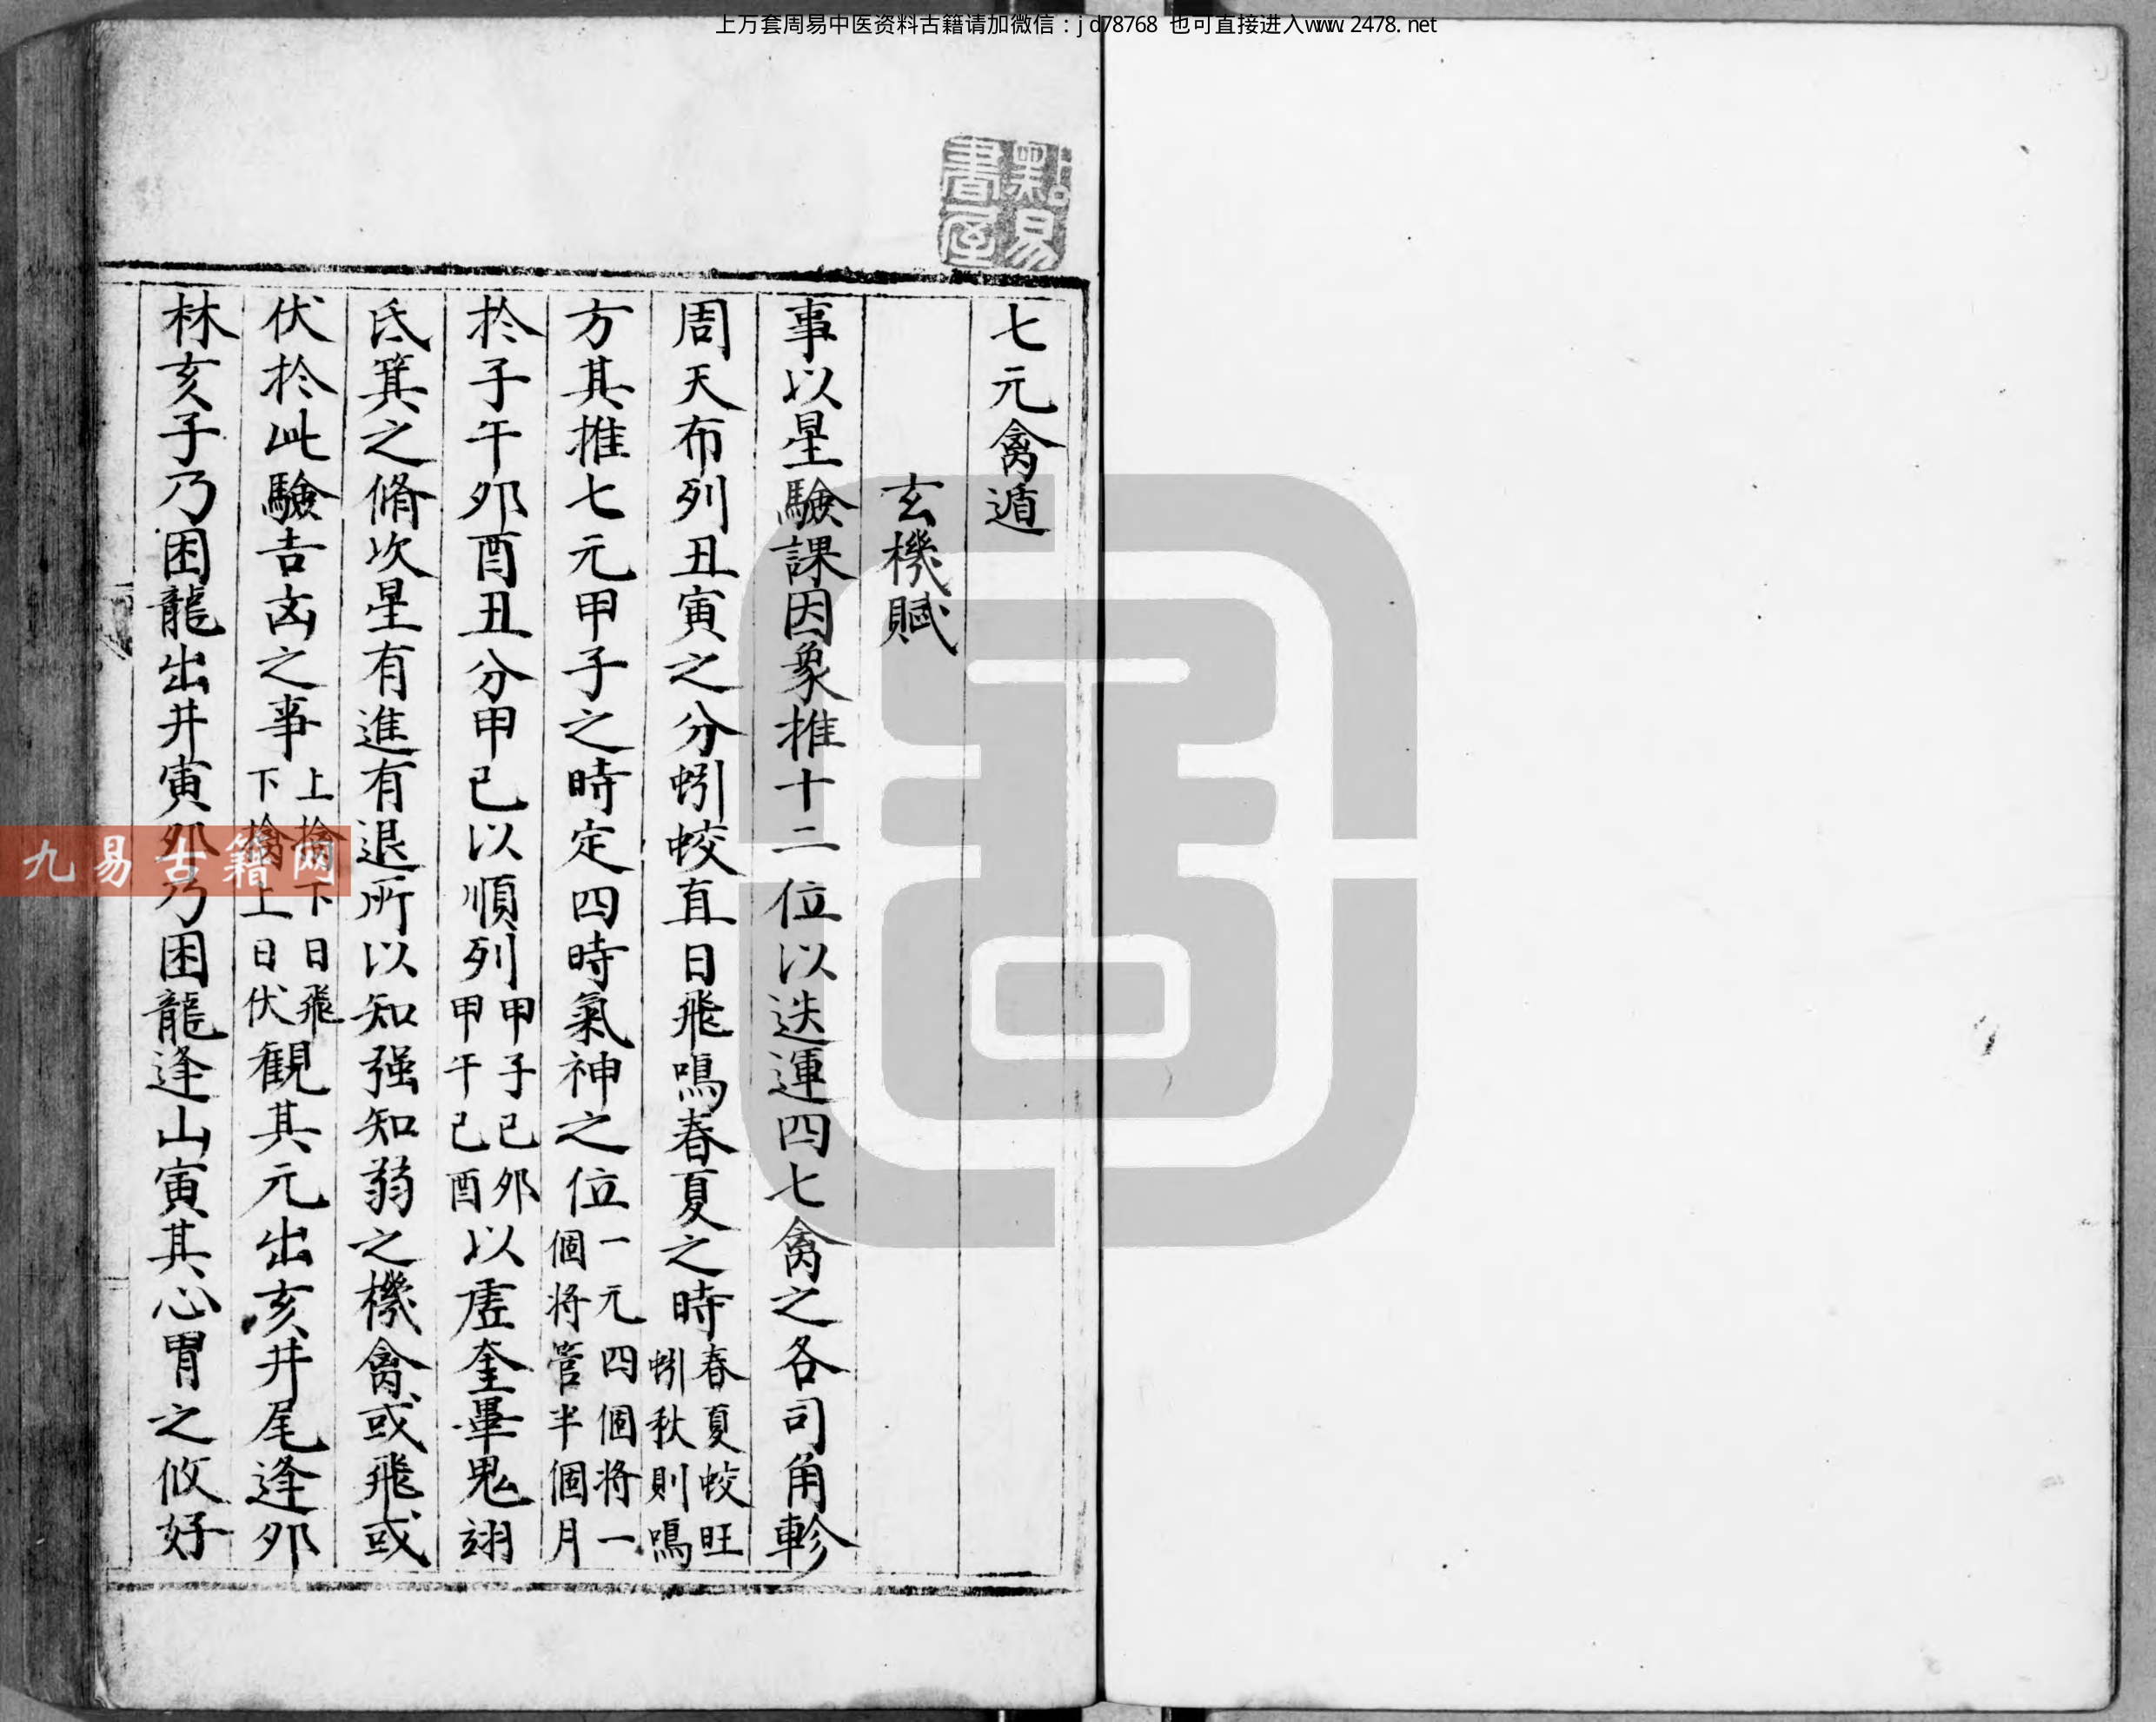 上万套周易中医资料古籍请加微信：jd78768 也可直接进入www.2478.net
點易書屋
七元禽遁
玄機賦
事以星驗課因象推十二位以迭運四七禽之各司角軫
周天布列丑寅之分蚓蛟直日飛鳴春夏之時春夏蛟旺蚓秋則鳴
方其推七元甲子之時定四時氣神之位一元四個将一個将管半個月
於子午夘酉丑分甲己以順列甲子己夘甲午己酉以虛奎畢鬼翊
氐箕之脩次星有進有退所以知强知弱之機禽或飛或
伏於此驗吉凶之事上擒下日飛下擒上日伏觀其元出亥井尾逢夘
林亥子乃困龍出井寅夘乃困龍逢山寅其心胃之攸好
九易古籍网